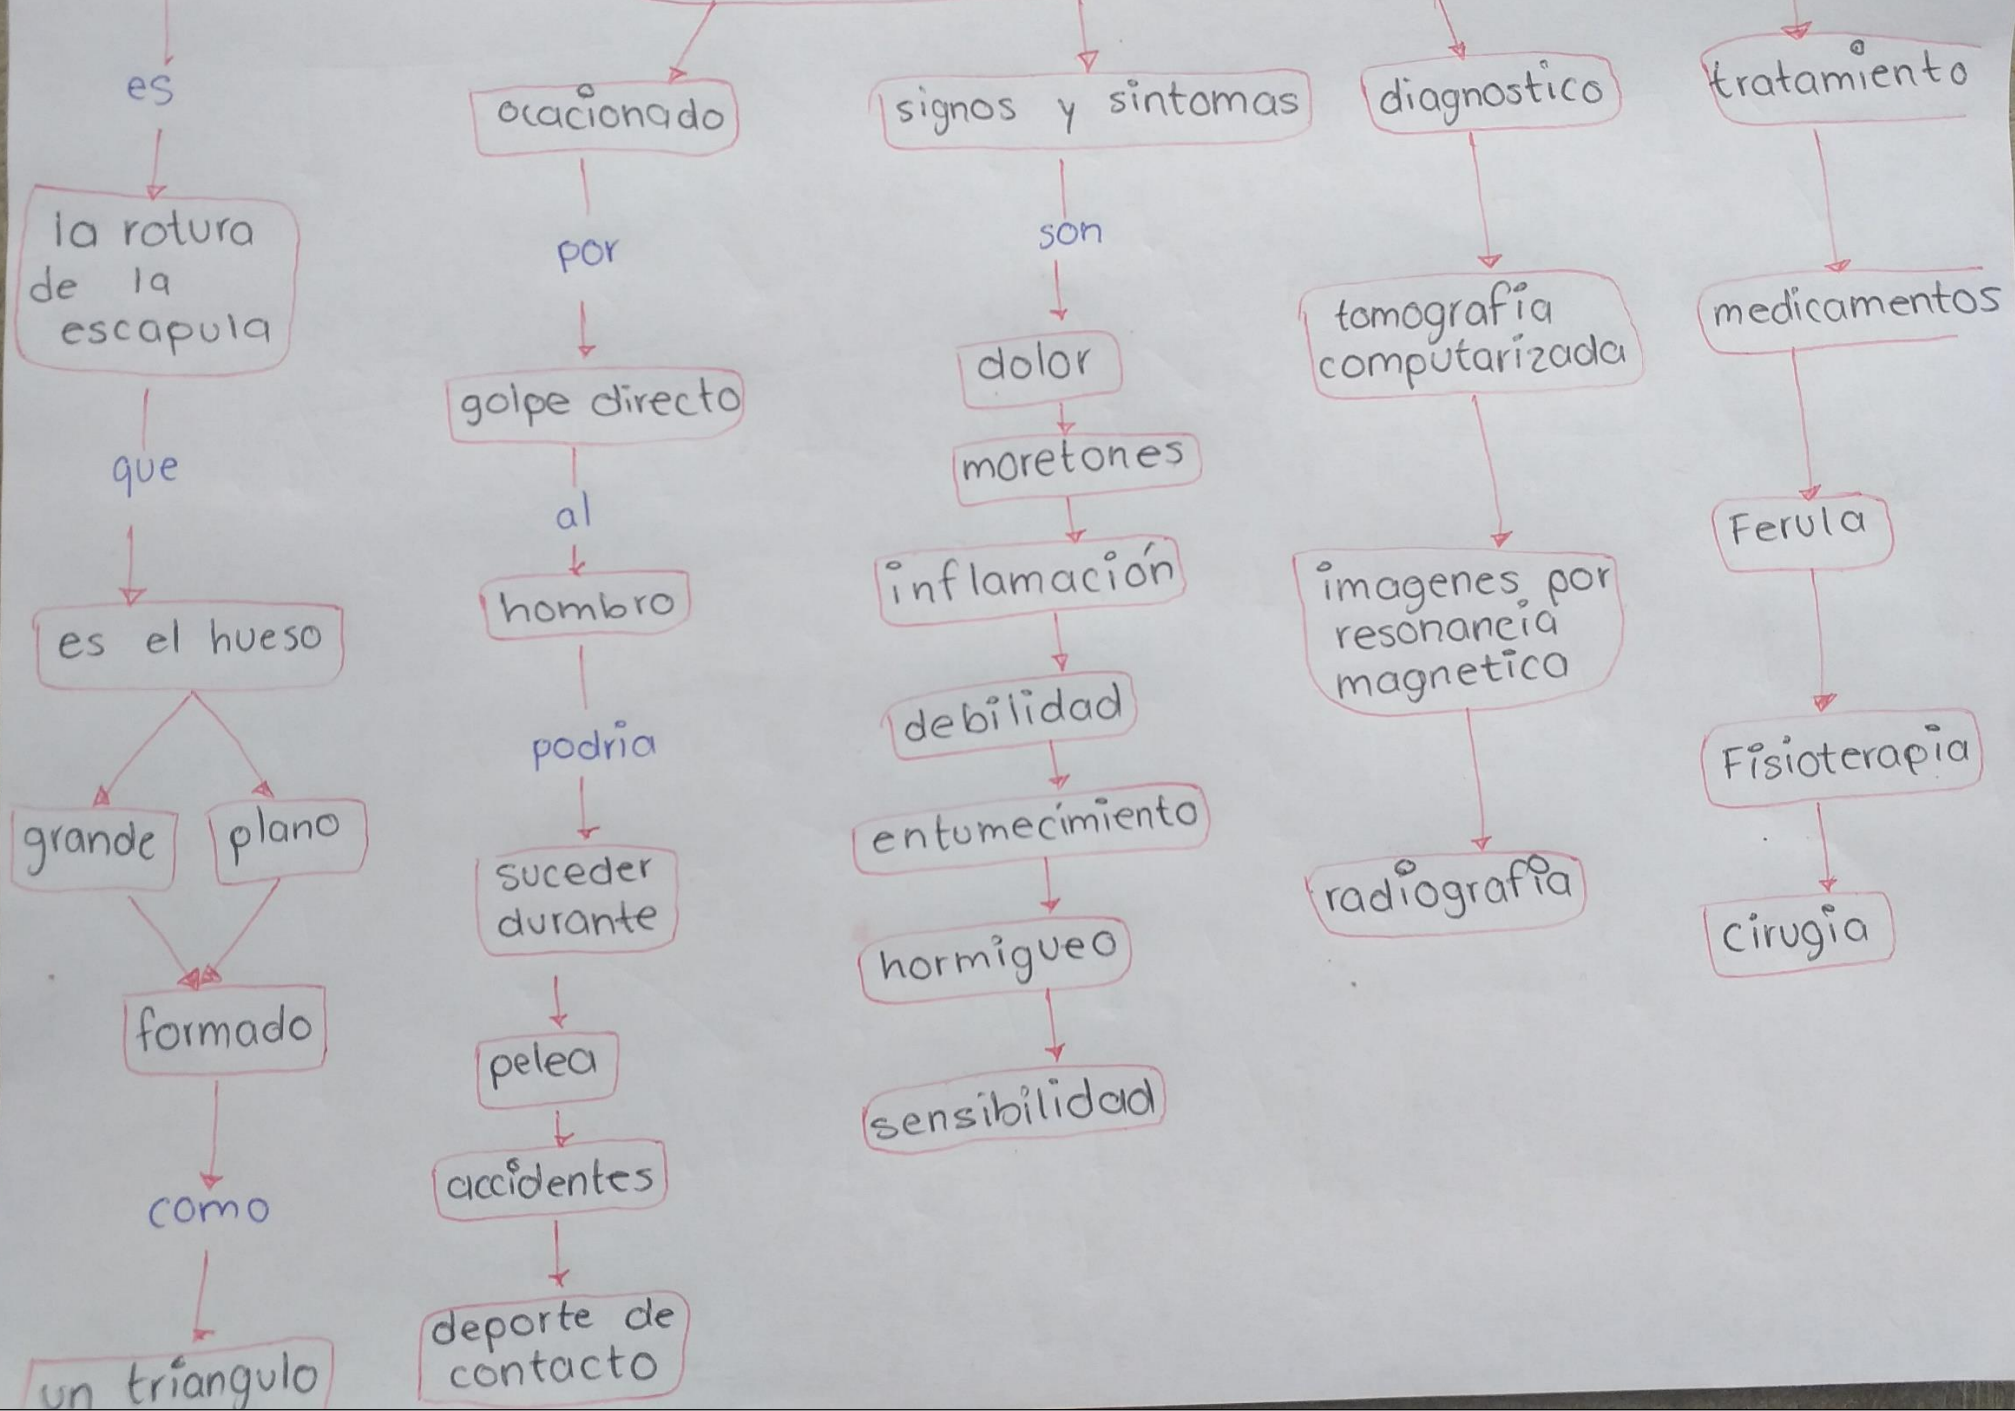 es
la rotura
de la
escapula
que
es el hueso
grande
plano
formado
como
un triangulo
ocacionado
por
golpe directo
al
hombro
podria
suceder
durante
pelea
accidentes
deporte de
contacto
signos y sintomas
son
dolor
moretones
inflamación
debilidad
entumecimiento
hormigueo
sensibilidad
diagnostico
tomografia
computarizada
imagenes por
resonancia
magnetica
radiografia
tratamiento
medicamentos
Ferula
Fisioterapia
cirugia